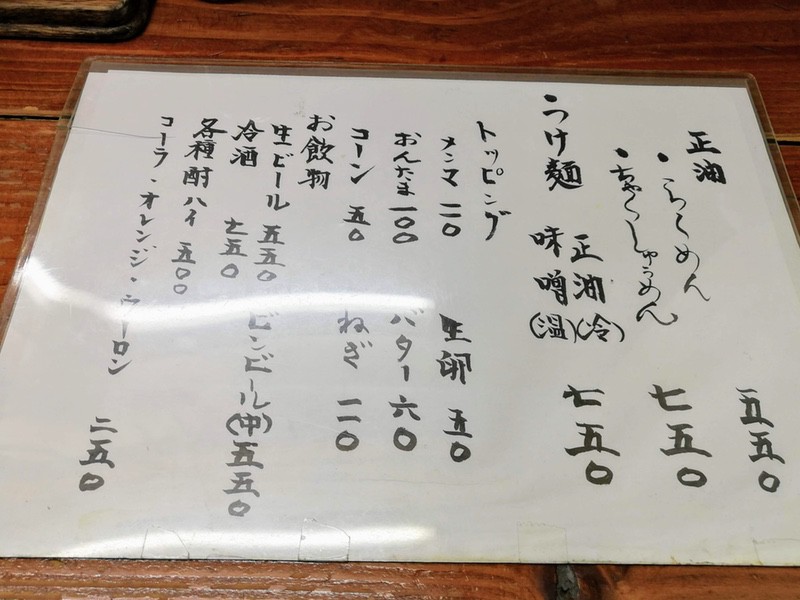 正油
・らーめん 五五〇
・ちゃーしゅうめん 七五〇
・つけ麺 正油(冷) 味噌(温) 七五〇
トッピング
メンマ 二〇 生卵 五〇
おんたま 一〇〇 バター 六〇
コーン 五〇 ねぎ 二〇
お飲物
生ビール 五五〇 ビンビール(中) 五五〇
冷酒 七五〇
各種酎ハイ 五〇〇
コーラ・オレンジ・ウーロン 二五〇